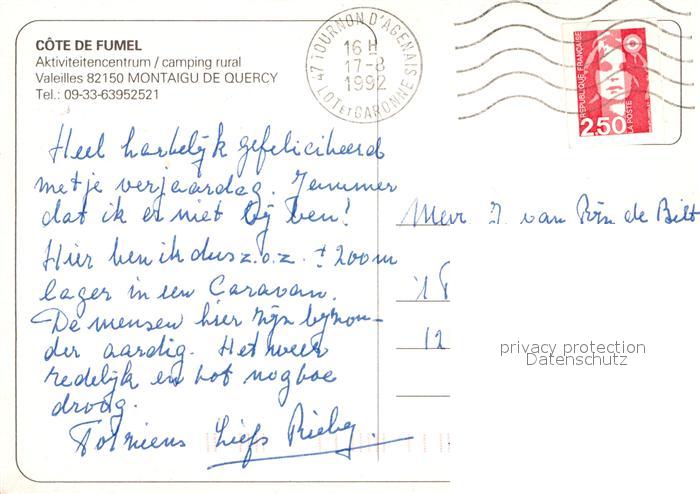 CÔTE DE FUMEL
Aktiviteitencentrum / camping rural
Valeilles 82150 MONTAIGU DE QUERCY
Tel.: 09-33-63952521
47 TOURNON D'AGENAIS
16 H
17-8
1992
LOT ET GARONNE
REPUBLIQUE FRANÇAISE
2,50
LA POSTE
Heel hartelijk gefeliciteerd
met je verjaardag. Jammer
dat ik er niet bij ben!
Hier ben ik dus z.o.z. ± 200 m
lager in een Caravan.
De mensen hier zijn bijzon-
der aardig. Het weer
redelijk en tot nog toe
droog.
Tot ziens Liefs
Mevr. J. van Rijn de Bilt
12
privacy protection
Datenschutz